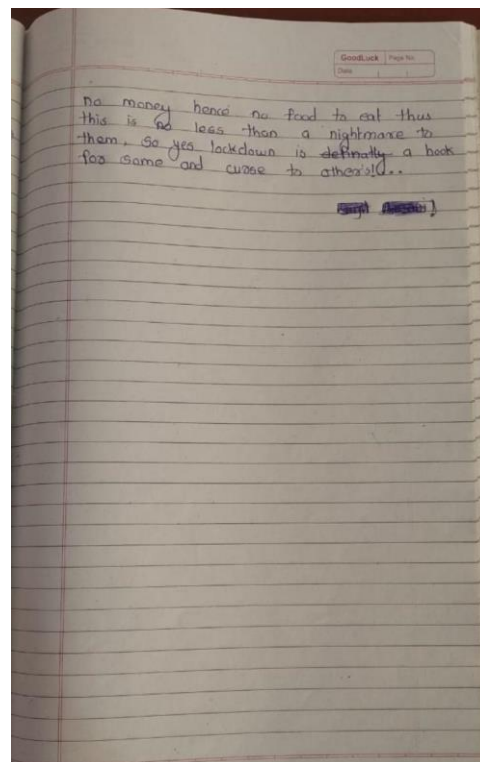 GoodLuck Page No.
Date
no money hence no food to eat thus
this is no less than a nightmare to
them. So yes lockdown is definatly a book
for some and curse to other's!...